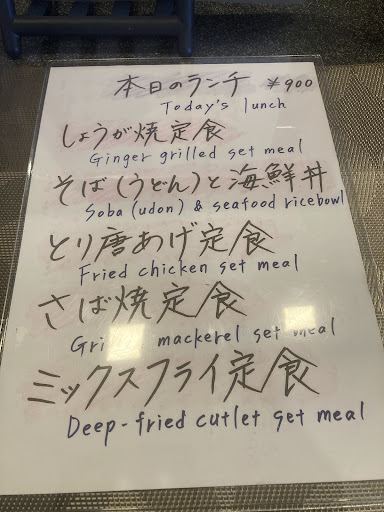 本日のランチ ¥900
Today's lunch
しょうが焼定食
Ginger grilled set meal
そば(うどん)と海鮮丼
Soba (udon) & seafood ricebowl
とり唐あげ定食
Fried chicken set meal
さば焼定食
mackerel set meal
ミックスフライ定食
Deep-fried cutlet set meal